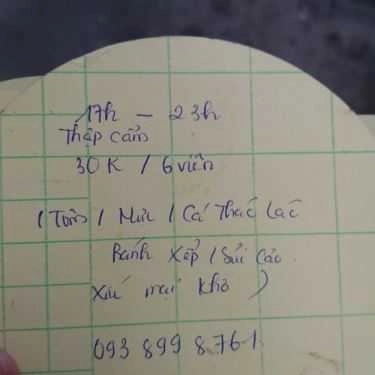 17h - 23h
Thập cẩm
30K / 6 viên
(Tôm / Mực / Cá Thác Lác
Bánh Xếp / Sủi Cảo
Xíu mại khô )
093 899 8761